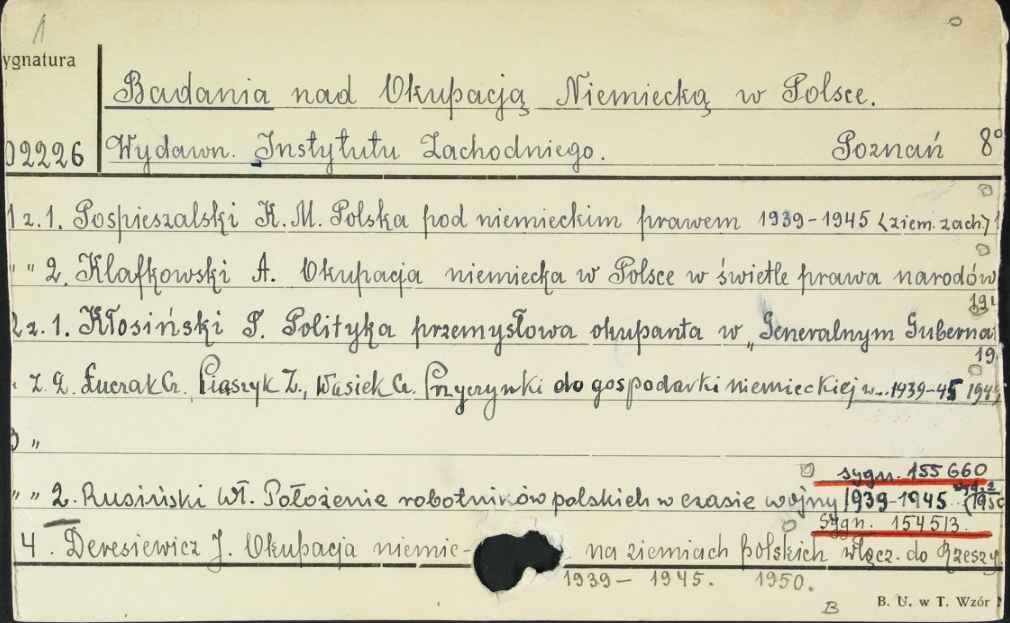 1
ygnatura
Badania nad Okupacją Niemiecką w Polsce.
02226 Wydawn. Instytutu Zachodniego. Poznań 8°
1 z. 1. Pospieszalski K. M. Polska pod niemieckim prawem 1939-1945 (ziem. zach.)
" " 2. Klafkowski A. Okupacja niemiecka w Polsce w świetle prawa narodów
2 z. 1. Kłosiński T. Polityka przemysłowa okupanta w „Generalnym Guberna
19
z. 2. Łuczak Cz. Piaszyk Z., Wąsiek Cz. Przyczynki do gospodarki niemieckiej w... 1939-45
3 "
sygn. 155660
" " 2. Rusiński Wł. Położenie robotników polskich w czasie wojny 1939-1945 wyd. 2 (195
sygn. 154513.
4. Deresiewicz J. Okupacja niemie- na ziemiach polskich włącz. do Rzeszy
1939 – 1945. 1950.
B
B. U. w T. Wzór